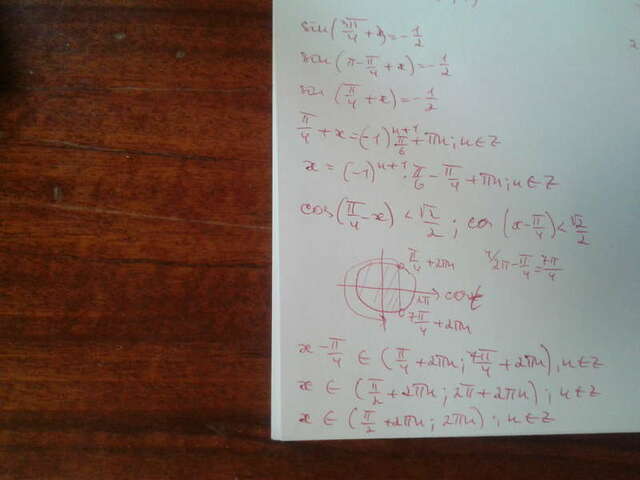 sin(3π/4 + x) = -1/2
sin(π - π/4 + x) = -1/2
sin(π/4 + x) = -1/2
π/4 + x = (-1)^{n+1} π/6 + πn; n ∈ Z
x = (-1)^{n+1} · π/6 - π/4 + πn; n ∈ Z
cos(π/4 - x) < √2/2; cos(x - π/4) < √2/2
π/4 + 2πn
2π - π/4 = 7π/4
2π
cost
7π/4 + 2πn
x - π/4 ∈ (π/4 + 2πn; 7π/4 + 2πn), n ∈ Z
x ∈ (π/2 + 2πn; 2π + 2πn); n ∈ Z
x ∈ (π/2 + 2πn; 2πn); n ∈ Z